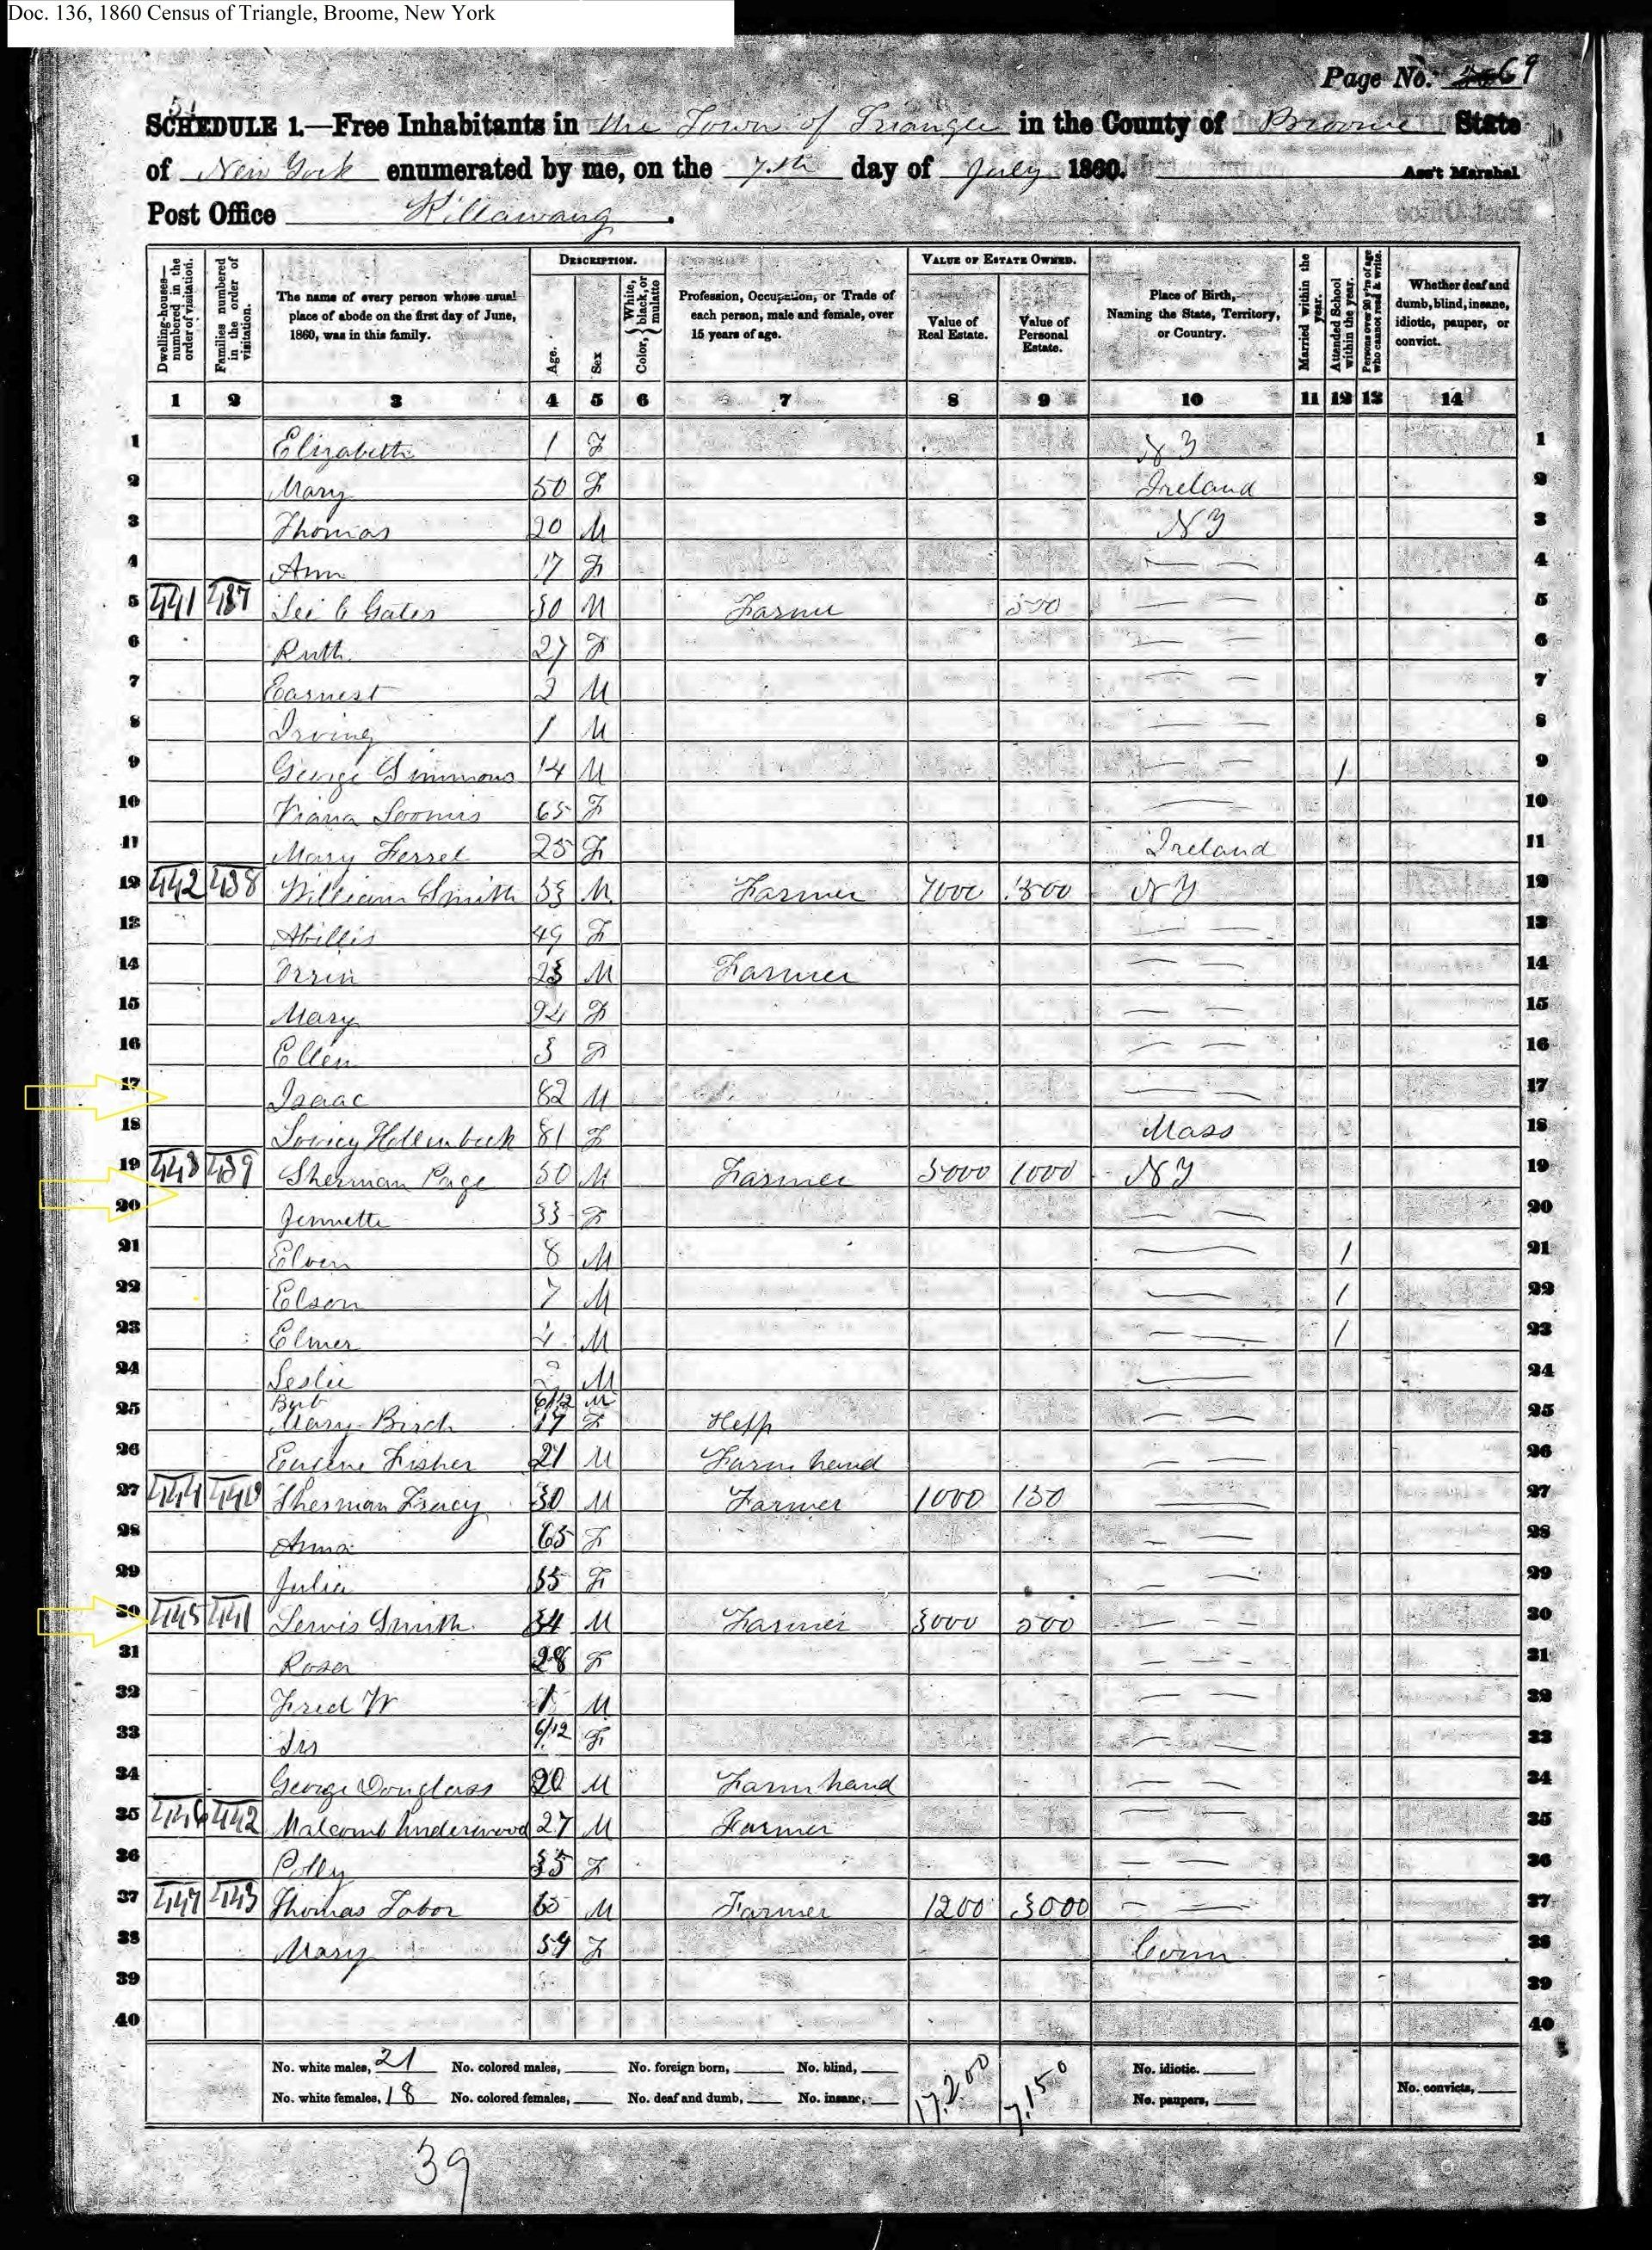 Doc. 136, 1860 Census of Triangle, Broome, New York
Page No. 69
51
SCHEDULE 1.—Free Inhabitants in the Town of Triangle in the County of Broome State
of New York enumerated by me, on the 7th day of July 1860. Ass't Marshal
Post Office Killawaug.
Dwelling-houses—numbered in the order of visitation. Families numbered in the order of visitation. The name of every person whose usual place of abode on the first day of June, 1860, was in this family. DESCRIPTION. Age. Sex Color, White, black, or mulatto Profession, Occupation, or Trade of each person, male and female, over 15 years of age. VALUE OF ESTATE OWNED. Value of Real Estate. Value of Personal Estate. Place of Birth, Naming the State, Territory, or Country. Married within the year. Attended School within the year. Persons over 20 y'rs of age who cannot read & write. Whether deaf and dumb, blind, insane, idiotic, pauper, or convict.
1 2 3 4 5 6 7 8 9 10 11 12 13 14
1 Elizabeth 1 F N Y 1
2 Mary 50 F Ireland 2
3 Thomas 20 M N Y 3
4 Ann 17 F — — 4
5 441 437 C Gates 30 M Farmer 500 — — 5
6 Ruth 27 F — — 6
7 Earnest 2 M — — 7
8 Irving 1 M — — 8
9 George Simmons 14 M — — / 9
10 Loomis 65 F — 10
11 Mary Ferrel 25 F Ireland 11
12 442 438 William Smith 53 M Farmer 7000 N Y 12
13 Abillis 49 F — — 13
14 Orrin 23 M Farmer — — 14
15 Mary 24 F — — 15
16 Ellen 3 F — — 16
17 Isaac 82 M — — 17
18 Lovicy Hollenbeck 81 F Mass 18
19 443 439 Sherman Page 50 M Farmer 5000 1000 N Y 19
20 Jennette 33 F — — 20
21 Elven 8 M — — / 21
22 Elson 7 M — — / 22
23 Elmer 4 M — — / 23
24 Leslie 2 M — 24
Burt 6/12 M
25 Mary Birch 17 F Help — — 25
26 Eugene Fisher 21 M Farm hand — — 26
27 444 440 Sherman Tracy 30 M Farmer 1000 150 — 27
28 Anna 65 F — — 28
29 Julia 35 F — — 29
30 445 441 Lewis Smith 34 M Farmer 3000 500 — — 30
31 Rosa 28 F — — 31
32 Fred W 1 M — — 32
33 6/12 F — — 33
34 George Douglass 20 M Farm hand — — 34
35 446 442 Malcomb Underwood 27 M Farmer — — 35
36 Polly 35 F — — 36
37 447 443 Thomas Tabor 65 M Farmer 1200 3000 — — 37
38 Mary 59 F Conn 38
39 39
40 40
No. white males, 21 No. colored males, No. foreign born, No. blind, 17,200 7,150 No. idiotic.
No. white females, 18 No. colored females, No. deaf and dumb, No. insane, No. paupers, No. convicts,
39